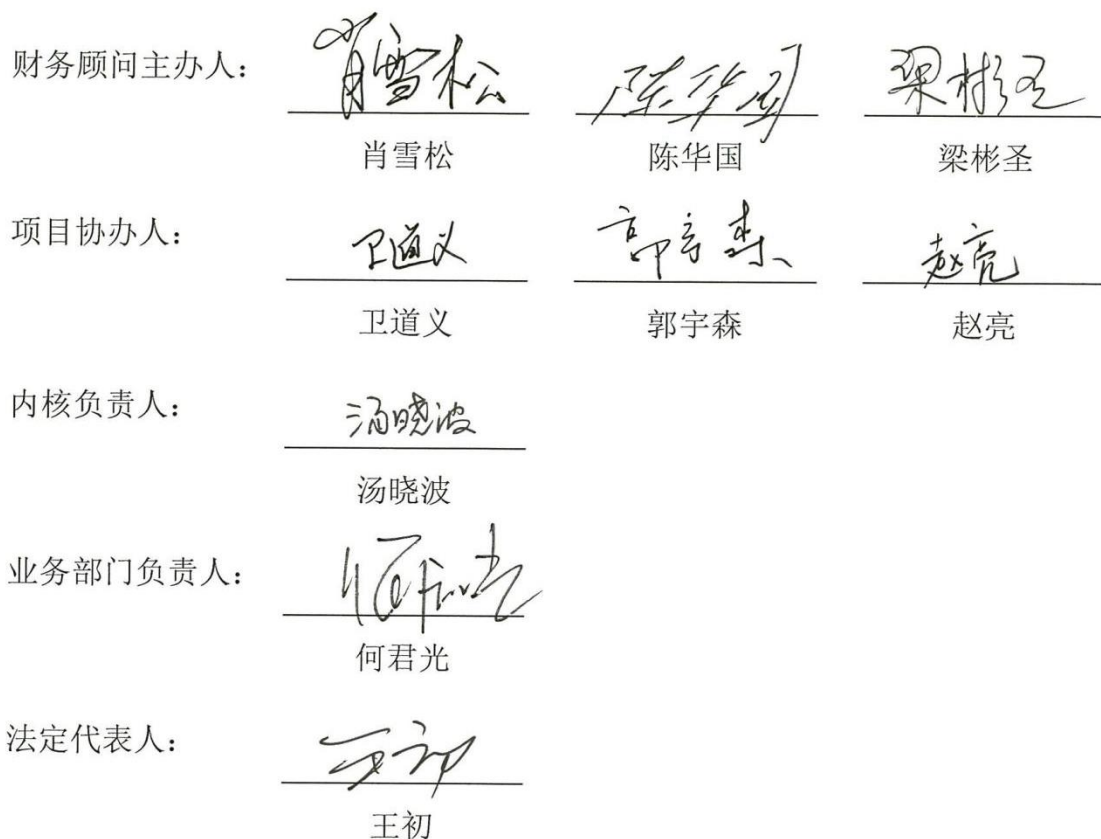 财务顾问主办人： 肖雪松 陈华国 梁彬圣
肖雪松 陈华国 梁彬圣
项目协办人： 卫道义 郭宇森 赵亮
卫道义 郭宇森 赵亮
内核负责人： 汤晓波
汤晓波
业务部门负责人： 何君光
何君光
法定代表人： 王初
王初